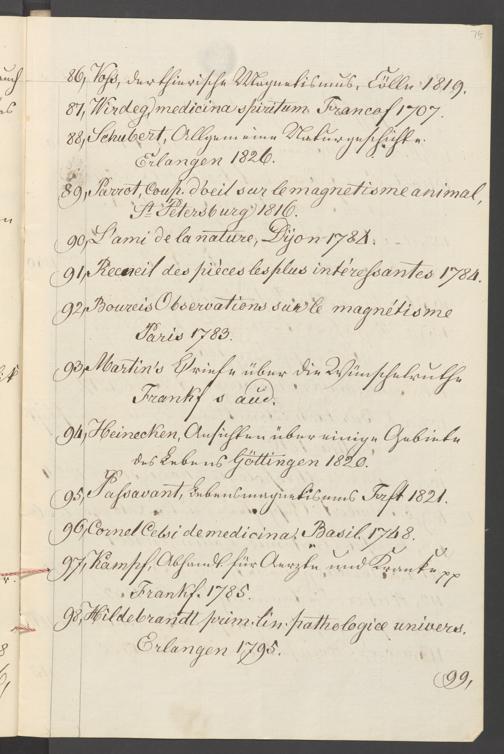 75
86, Voß, der thierische Magnetismus, Cölln 1819.
87, Wirdeg, medicina spiritum Francof 1707.
88, Schubert, Allgemeine Naturgeschichte.
Erlangen 1826.
89, Parrot, Coup d'oeil sur le magnetisme animal,
St Petersburg 1816.
90, L'ami de la nature, Dijon 1784.
91, Recueil des pièces les plus intéressantes 1784.
92, Boureis Observations sur le magnétisme
Paris 1783.
93, Martin's Briefe über die Wünschelruthe
Frankf
94, Heinecken, Ansichten über einige Gebiete
des Lebens Göttingen 1820.
95, Passavant, Lebensmagnetismus Frft 1821.
96, Cornel Celsi de medicina. Basil. 1748.
97, Kämpf, Abhandl für Aerzte und Kranke pp
Frankf. 1785.
98, Hildebrandt prim. lin. pathologiae univers.
Erlangen 1795.
99,